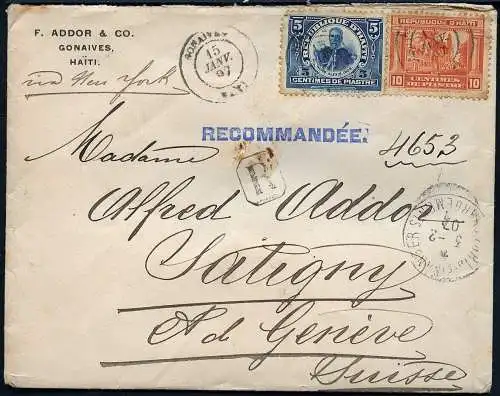 F. ADDOR & CO.
GONAIVES,
HAÏTI.
via New York
GONAIVES
15
JANV.
07
5 5
REPUBLIQUE D'HAITI
5 5
CENTIMES DE PIASTRE
REPUBLIQUE D'HAITI
10 10
CENTIMES
DE PIASTRE
RECOMMANDÉE.
4653
R
Madame
Alfred Addor
Satigny
Ad Genève
Suisse
3 -2
07